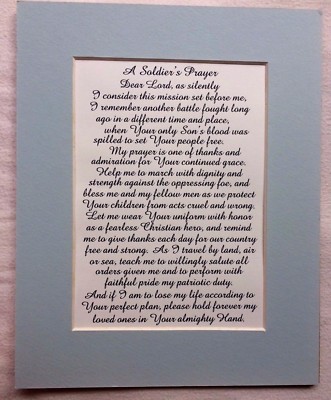 A Soldier's Prayer
Dear Lord, as silently
I consider this mission set before me,
I remember another battle fought long
ago in a different time and place,
when Your only Son's blood was
spilled to set Your people free.
My prayer is one of thanks and
admiration for Your continued grace.
Help me to march with dignity and
strength against the oppressing foe, and
bless me and my fellow men as we protect
Your children from acts cruel and wrong.
Let me wear Your uniform with honor
as a fearless Christian hero, and remind
me to give thanks each day for our country
free and strong. As I travel by land, air
or sea, teach me to willingly salute all
orders given me and to perform with
faithful pride my patriotic duty.
And if I am to lose my life according to
Your perfect plan, please hold forever my
loved ones in Your almighty Hand.